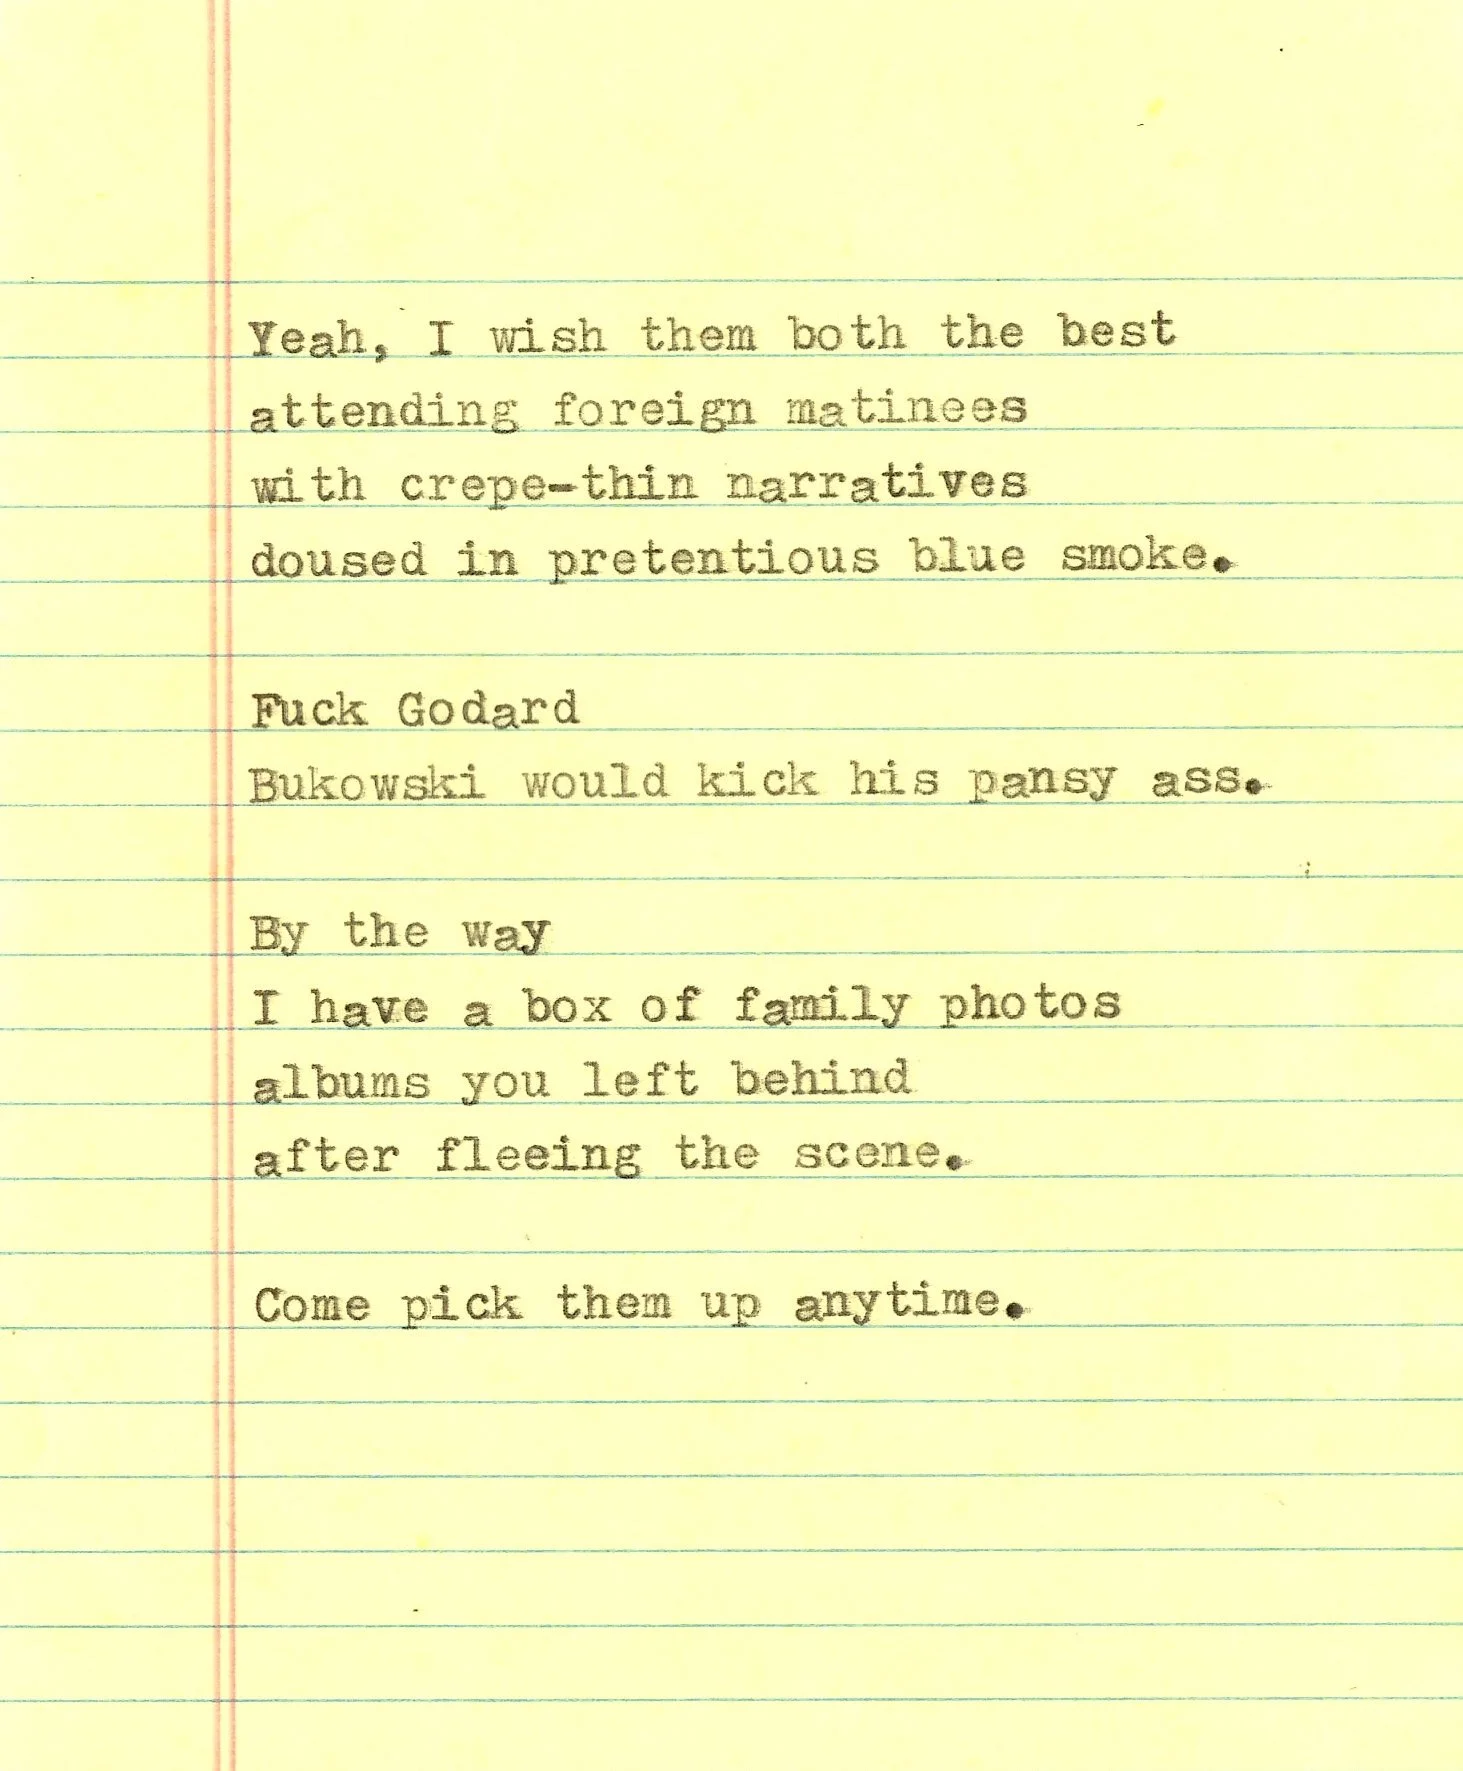 Yeah, I wish them both the best
attending foreign matinees
with crepe-thin narratives
doused in pretentious blue smoke.
Fuck Godard
Bukowski would kick his pansy ass.
By the way
I have a box of family photos
albums you left behind
after fleeing the scene.
Come pick them up anytime.